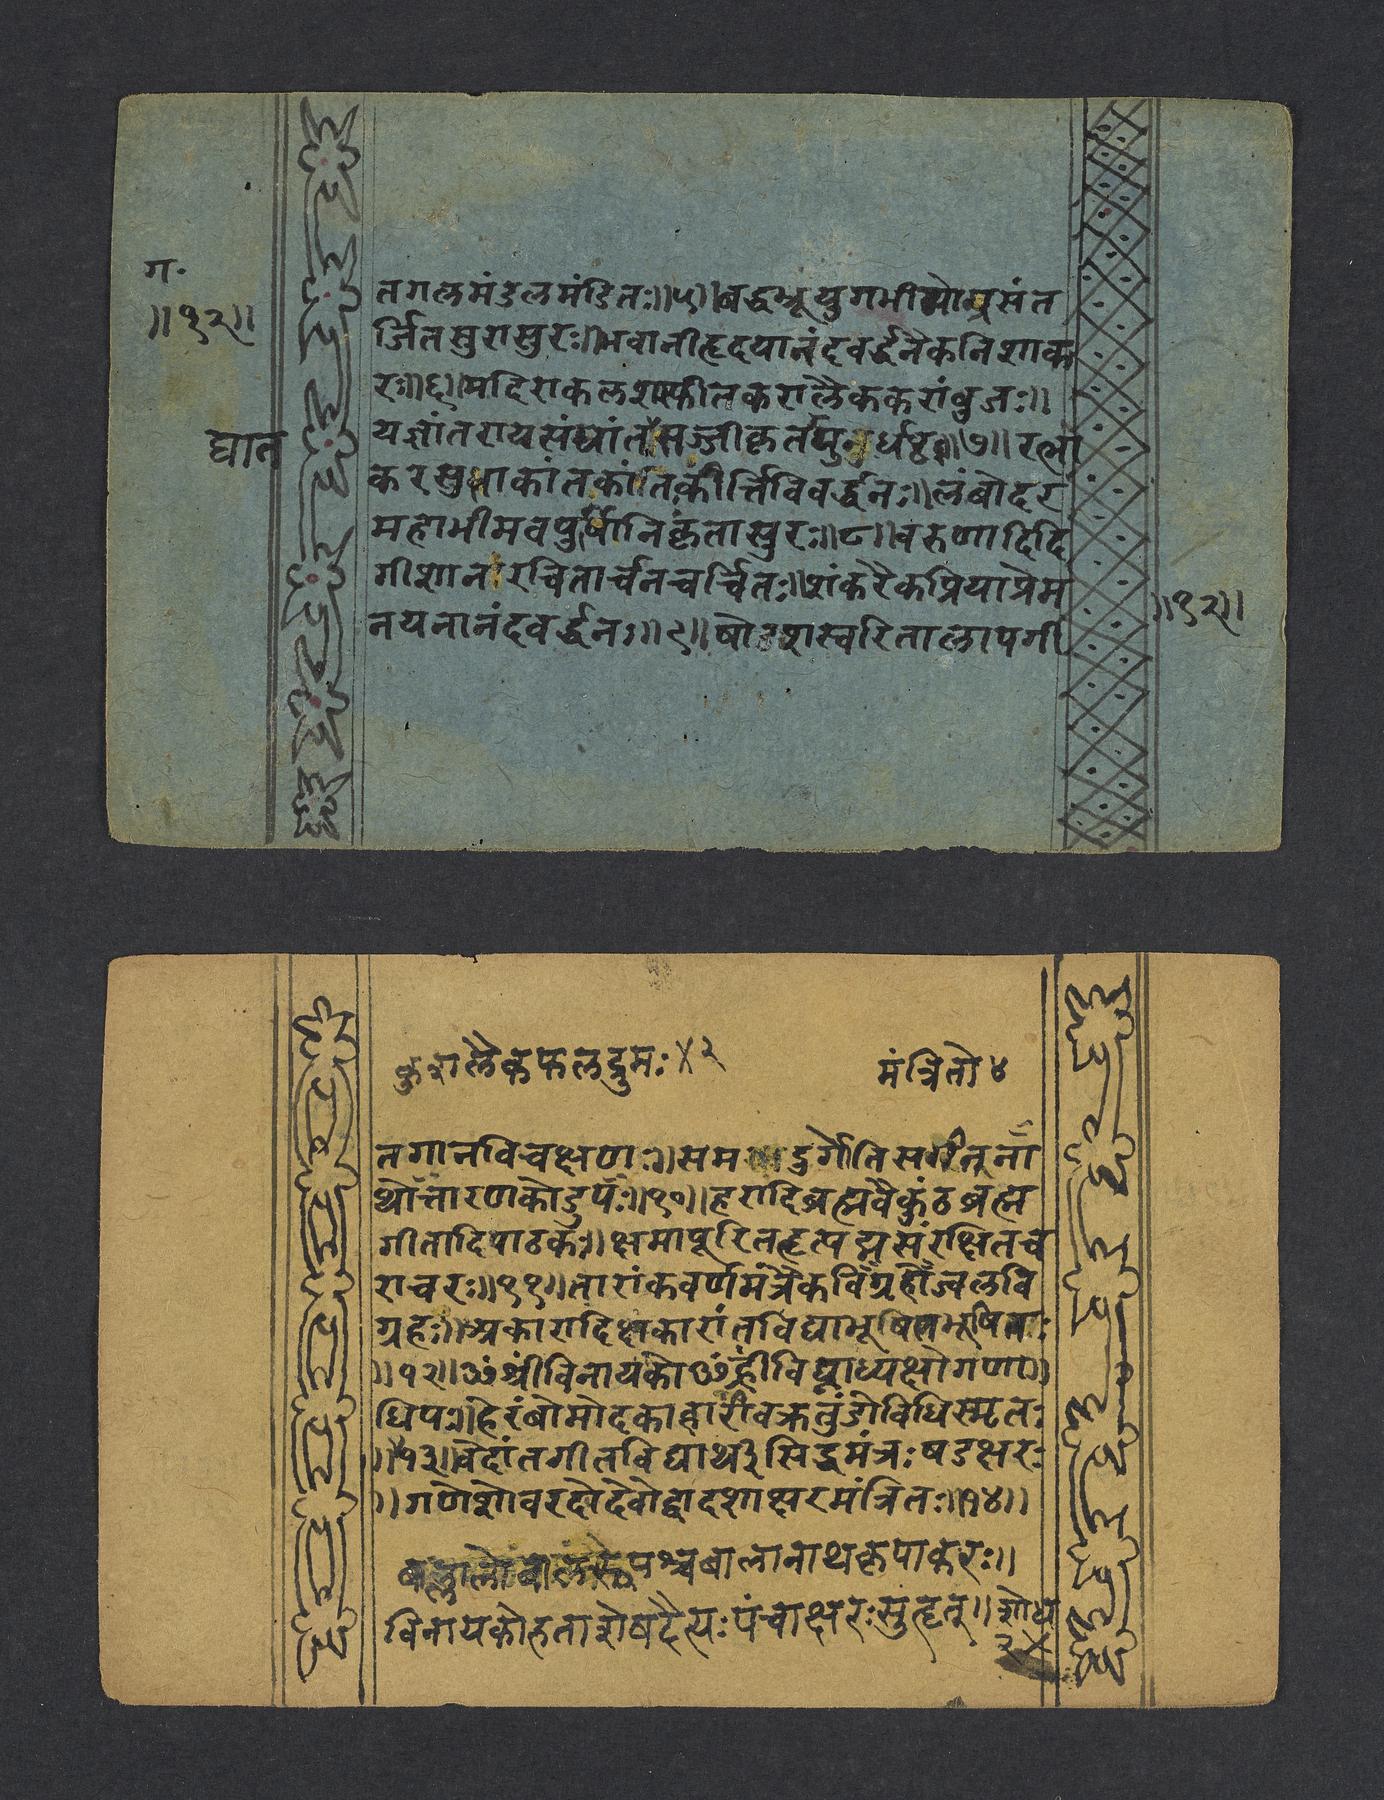 ग॰
॥१२॥
तगलमंडलमंडितः॥५॥बद्धभ्रूयुगभीमोग्रसंत
र्जितसुरासुरः॥भवानीहृदयानंदवर्द्धनैकनिशाक
रः॥६॥मदिराकलशस्फीतकरालैककरांबुजः॥
यज्ञांतरायसंघांतसज्जीकृत ॥७॥रत्ना
घात
करसुधाकांतकांतिकीर्त्तिविवर्द्धनः॥लंबोदर
महाभीमवपु कृतासुरः॥८॥वरुणादिदि
गीशानरचितार्चनचर्चितः॥शंकरैकप्रियाप्रेम
नयनानंदवर्द्धनः॥९॥षोडशस्वरितालापगी
॥१२॥
कुशलैकफलद्रुमः४२
मंत्रितो४
तगानविचक्षणः॥सम दुर्गोतिस
थोत्तारणकोडुपः॥१०॥हरादिब्रह्मवैकुंठब्रह्म
गीतादिपाठकः॥क्षमापूरितहृत्पद्मसंरक्षितच
राचरः॥११॥तारांकवर्णमंत्रैकविग्रहोज्वलवि
ग्रहः॥अकारादिक्षकारांतविद्याभूषित
॥१२॥ॐश्रींविनायकोॐह्रींविघ्नाध्यक्षोगणा॥
धिपः॥हेरंबोमोदकाहारीवक्रतुंडोविधिस्मृतः
॥१३॥वेदांतगीतविद्यार्थःसिद्धमंत्रःषडक्षरः
॥गणेशोवरदोदेवोद्वादशाक्षरमंत्रितः॥१४॥
पश्चबालानाथकृपाकरः॥
विनायकोहताशेषदैत्यः पंचाक्षरःसुहृत्॥